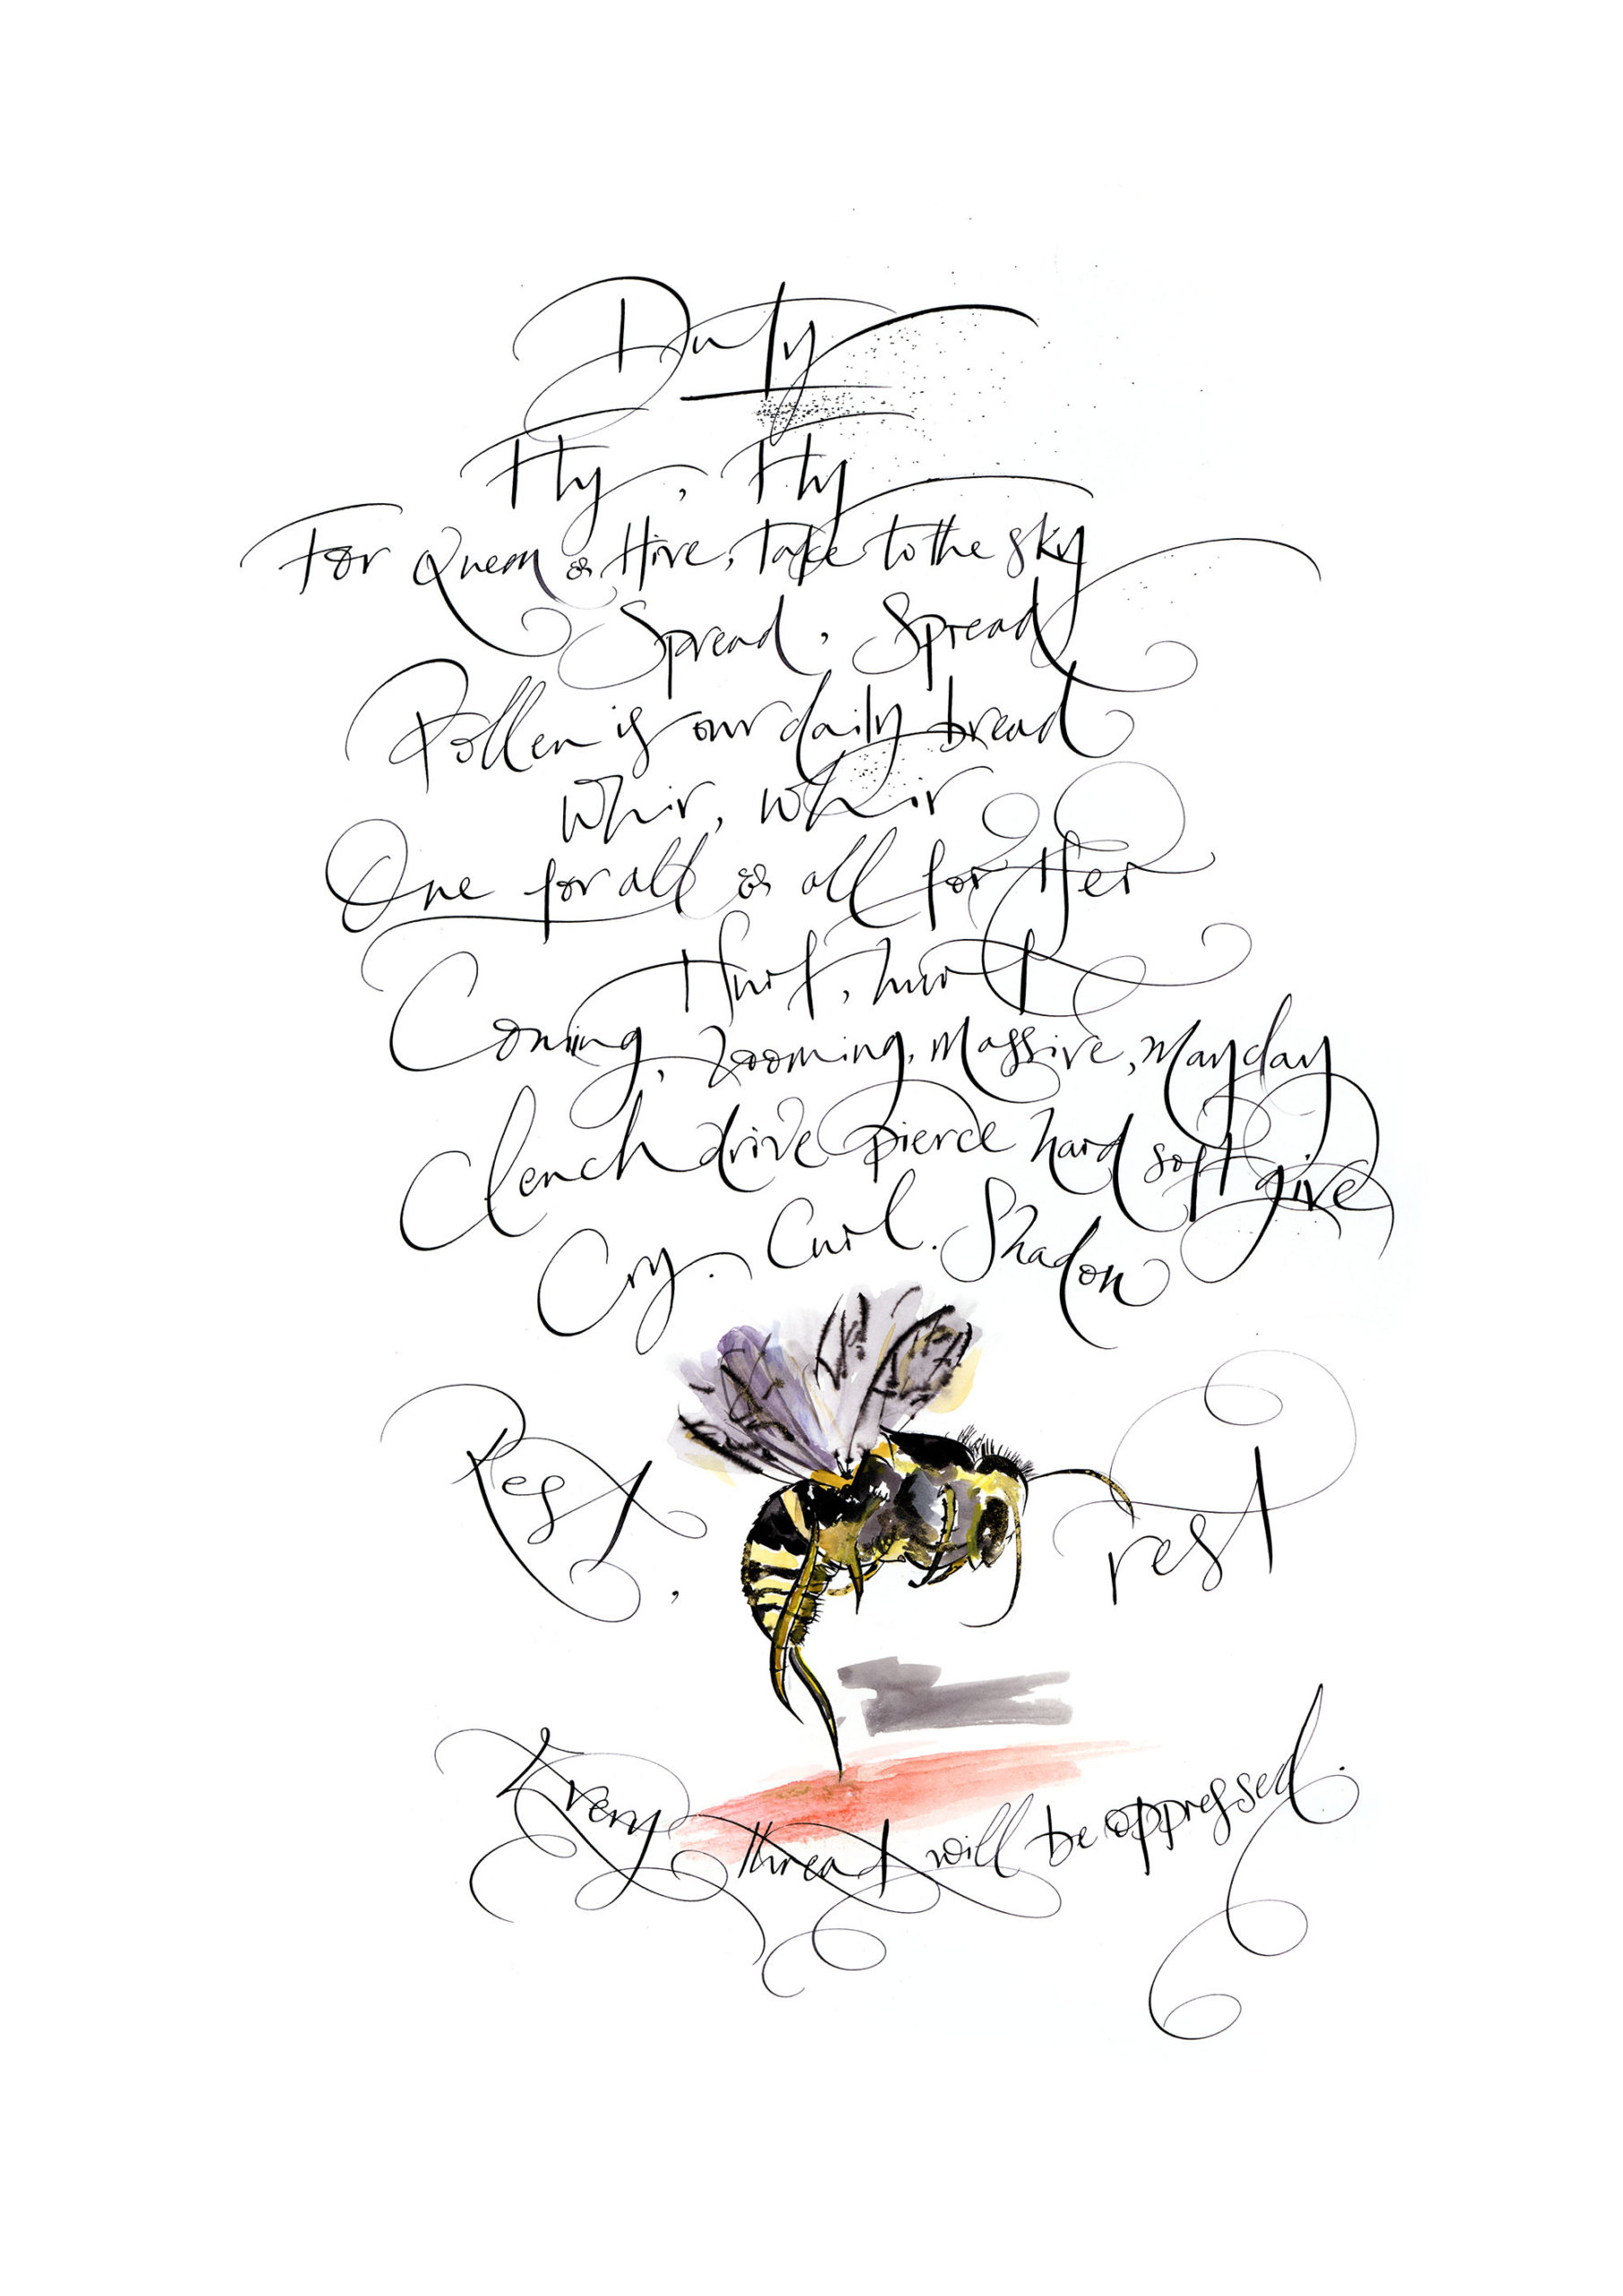 Duty
Fly, Fly
For Queen & Hive, take to the sky
Spread, Spread
Pollen is our daily bread
Whir, whir
One for all & all for Her
Hurt, hurt
Coming, zooming, massive, mayday
Clench drive pierce hard soft give
Cry. Curl. Shadow
Rest, rest
Every threat will be oppressed.